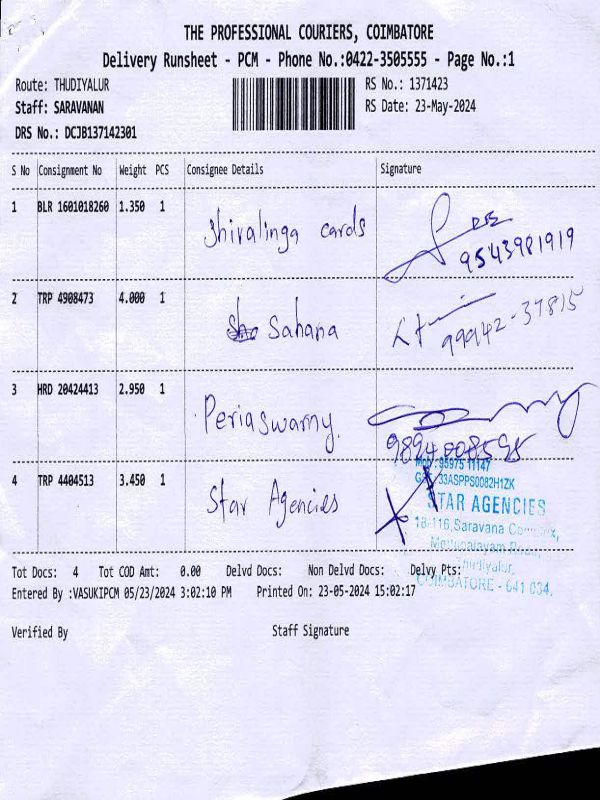 THE PROFESSIONAL COURIERS, COIMBATORE
Delivery Runsheet - PCM - Phone No.:0422-3505555 - Page No.:1
Route: THUDIYALUR RS No.: 1371423
Staff: SARAVANAN RS Date: 23-May-2024
DRS No.: DCJB137142301
S No Consignment No Weight PCS Consignee Details Signature
1 BLR 1601018260 1.350 1 Shivalinga cards 9543981919
2 TRP 4908473 4.000 1 Sahana 99942-37815
3 HRD 20424413 2.950 1 Periaswamy 9894008595
4 TRP 4404513 3.450 1 Star Agencies
59575 11147
33ASPPS0082H1ZK
STAR AGENCIES
18-116, Saravana
COIMBATORE - 641 034.
Tot Docs: 4 Tot COD Amt: 0.00 Delvd Docs: Non Delvd Docs: Delvy Pts:
Entered By :VASUKIPCM 05/23/2024 3:02:10 PM Printed On: 23-05-2024 15:02:17
Verified By Staff Signature